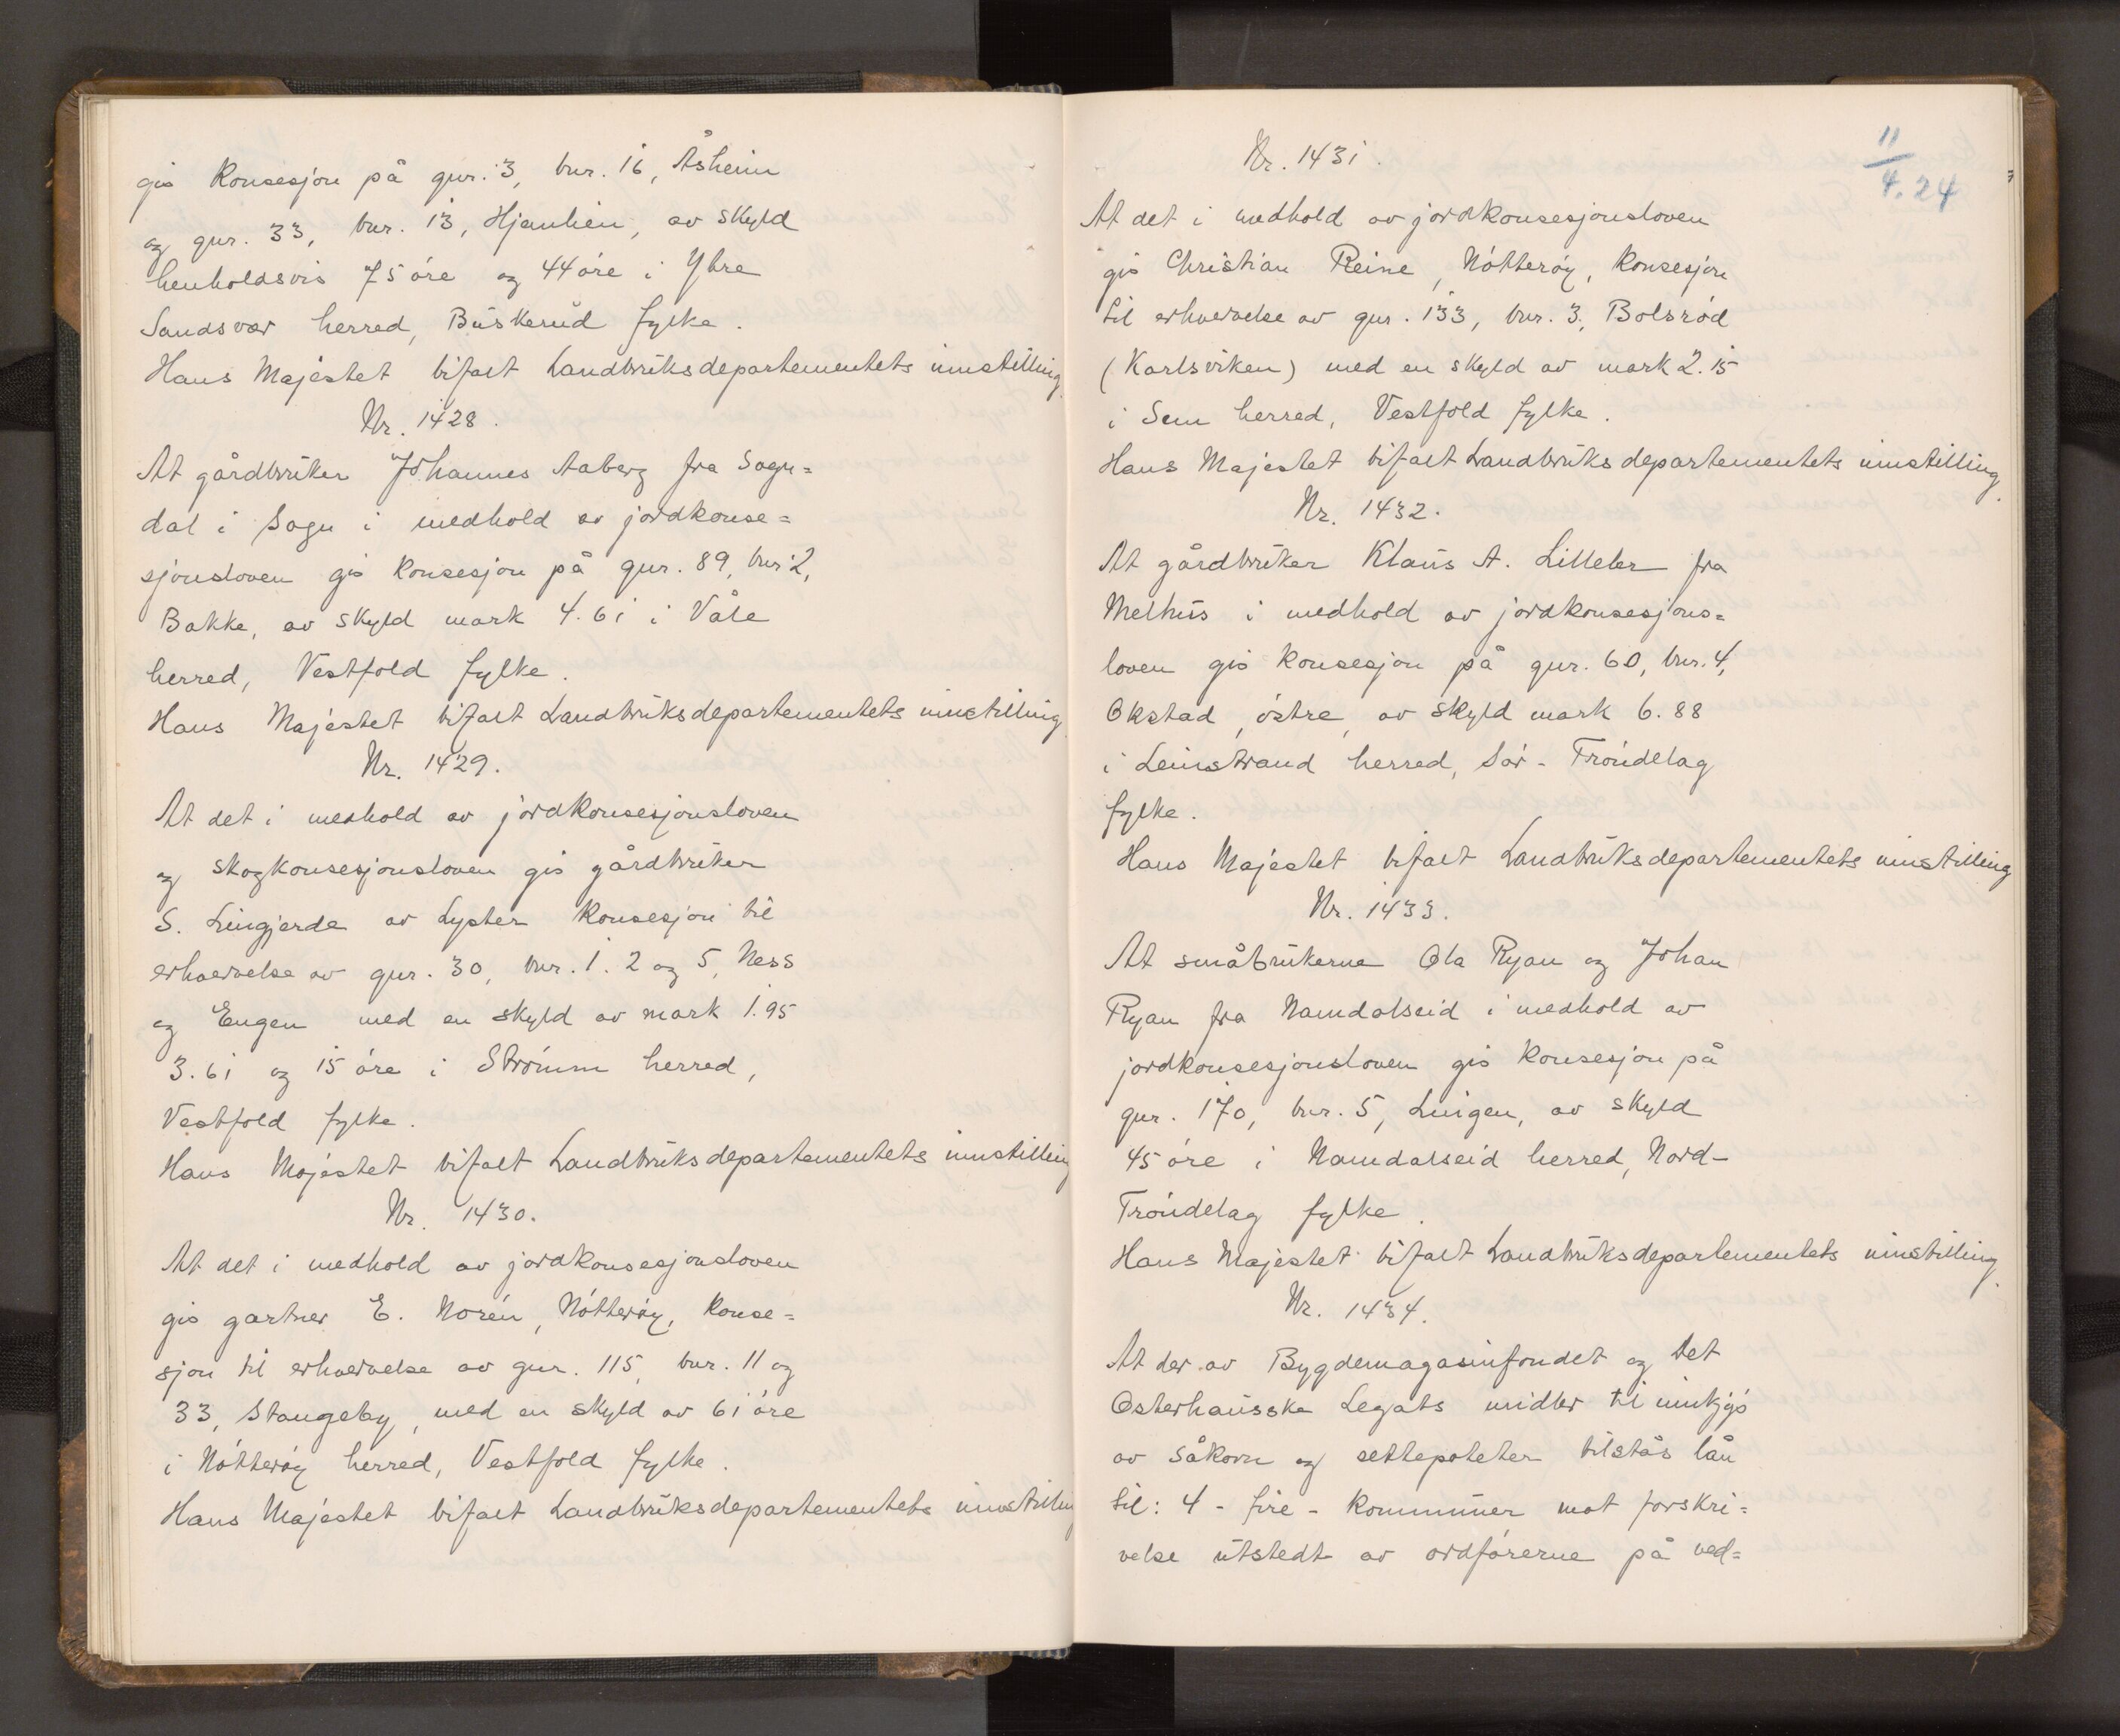 gis konsesjon på gnr. 3, bnr. 16, Åsheim
og gnr. 33, bnr. 13, Hjemlien, av skyld
henholdsvis 75 øre og 44 øre i Ytre
Sandsvær herred, Buskerud fylke.
Hans Majestet bifalt Landbruksdepartementets innstilling
Nr. 1428.
At gårdbruker Johannes Aaberg fra Sogn=
dal i Sogn i medhold av jordkonse=
sjonsloven gis konsesjon på gnr. 89, bnr. 2,
Bakke, av skyld mark 4.61 i Våle
herred, Vestfold fylke.
Hans Majestet bifalt Landbruksdepartementets innstilling
Nr. 1429.
At det i medhold av jordkonsesjonsloven
og skogkonsesjonsloven gis gårdbruker
S. Lingjerde av Lyster konsesjon til
erhvervelse av gnr. 30, bnr. 1. 2 og 5, Ness
og Engen med en skyld av mark 1.95
3.61 og 15 øre i Strømm herred,
Vestfold fylke.
Hans Majestet bifalt Landbruksdepartementets innstilling
Nr. 1430.
At det i medhold av jordkonsesjonsloven
gis gartner E. Norén, Nøtterøy, konse=
sjon til erhvervelse av gnr. 115, bnr. 11 og
33, Stangeby, med en skyld av 61 øre
i Nøtterøy herred, Vestfold fylke.
Hans Majestet bifalt Landbruksdepartementets innstilling
11/4.24
Nr. 1431.
At det i medhold av jordkonsesjonsloven
gis Christian Reine, Nøtterøy, konsesjon
til erhvervelse av gnr. 133, bnr. 3, Bolsrød
(Karlsviken) med en skyld av mark 2.15
i Sem herred, Vestfold fylke.
Hans Majestet bifalt Landbruksdepartementets innstilling.
Nr. 1432.
At gårdbruker Klaus A. Lilleler fra
Melhus i medhold av jordkonsesjons=
loven gis konsesjon på gnr. 60, bnr. 4,
Okstad, østre, av skyld mark 6.88
i Leinstrand herred, Sør-Trøndelag
fylke.
Hans Majestet bifalt Landbruksdepartementets innstilling
Nr. 1433.
At småbrukerne Ola Ryan og Johan
Ryan fra Namdalseid i medhold av
jordkonsesjonsloven gis konsesjon på
gnr. 170, bnr. 5, Lingen, av skyld
45 øre i Namdalseid herred, Nord-
Trøndelag fylke.
Hans Majestet bifalt Landbruksdepartementets innstilling.
Nr. 1434.
At der av Bygdemagasinfondet og Det
Osterhausske Legats midler til innkjøp
av såkorn og settepoteter tilståes lån
til: 4 - fire - kommuner mot forskri=
velse utstedt av ordførerne på ved=